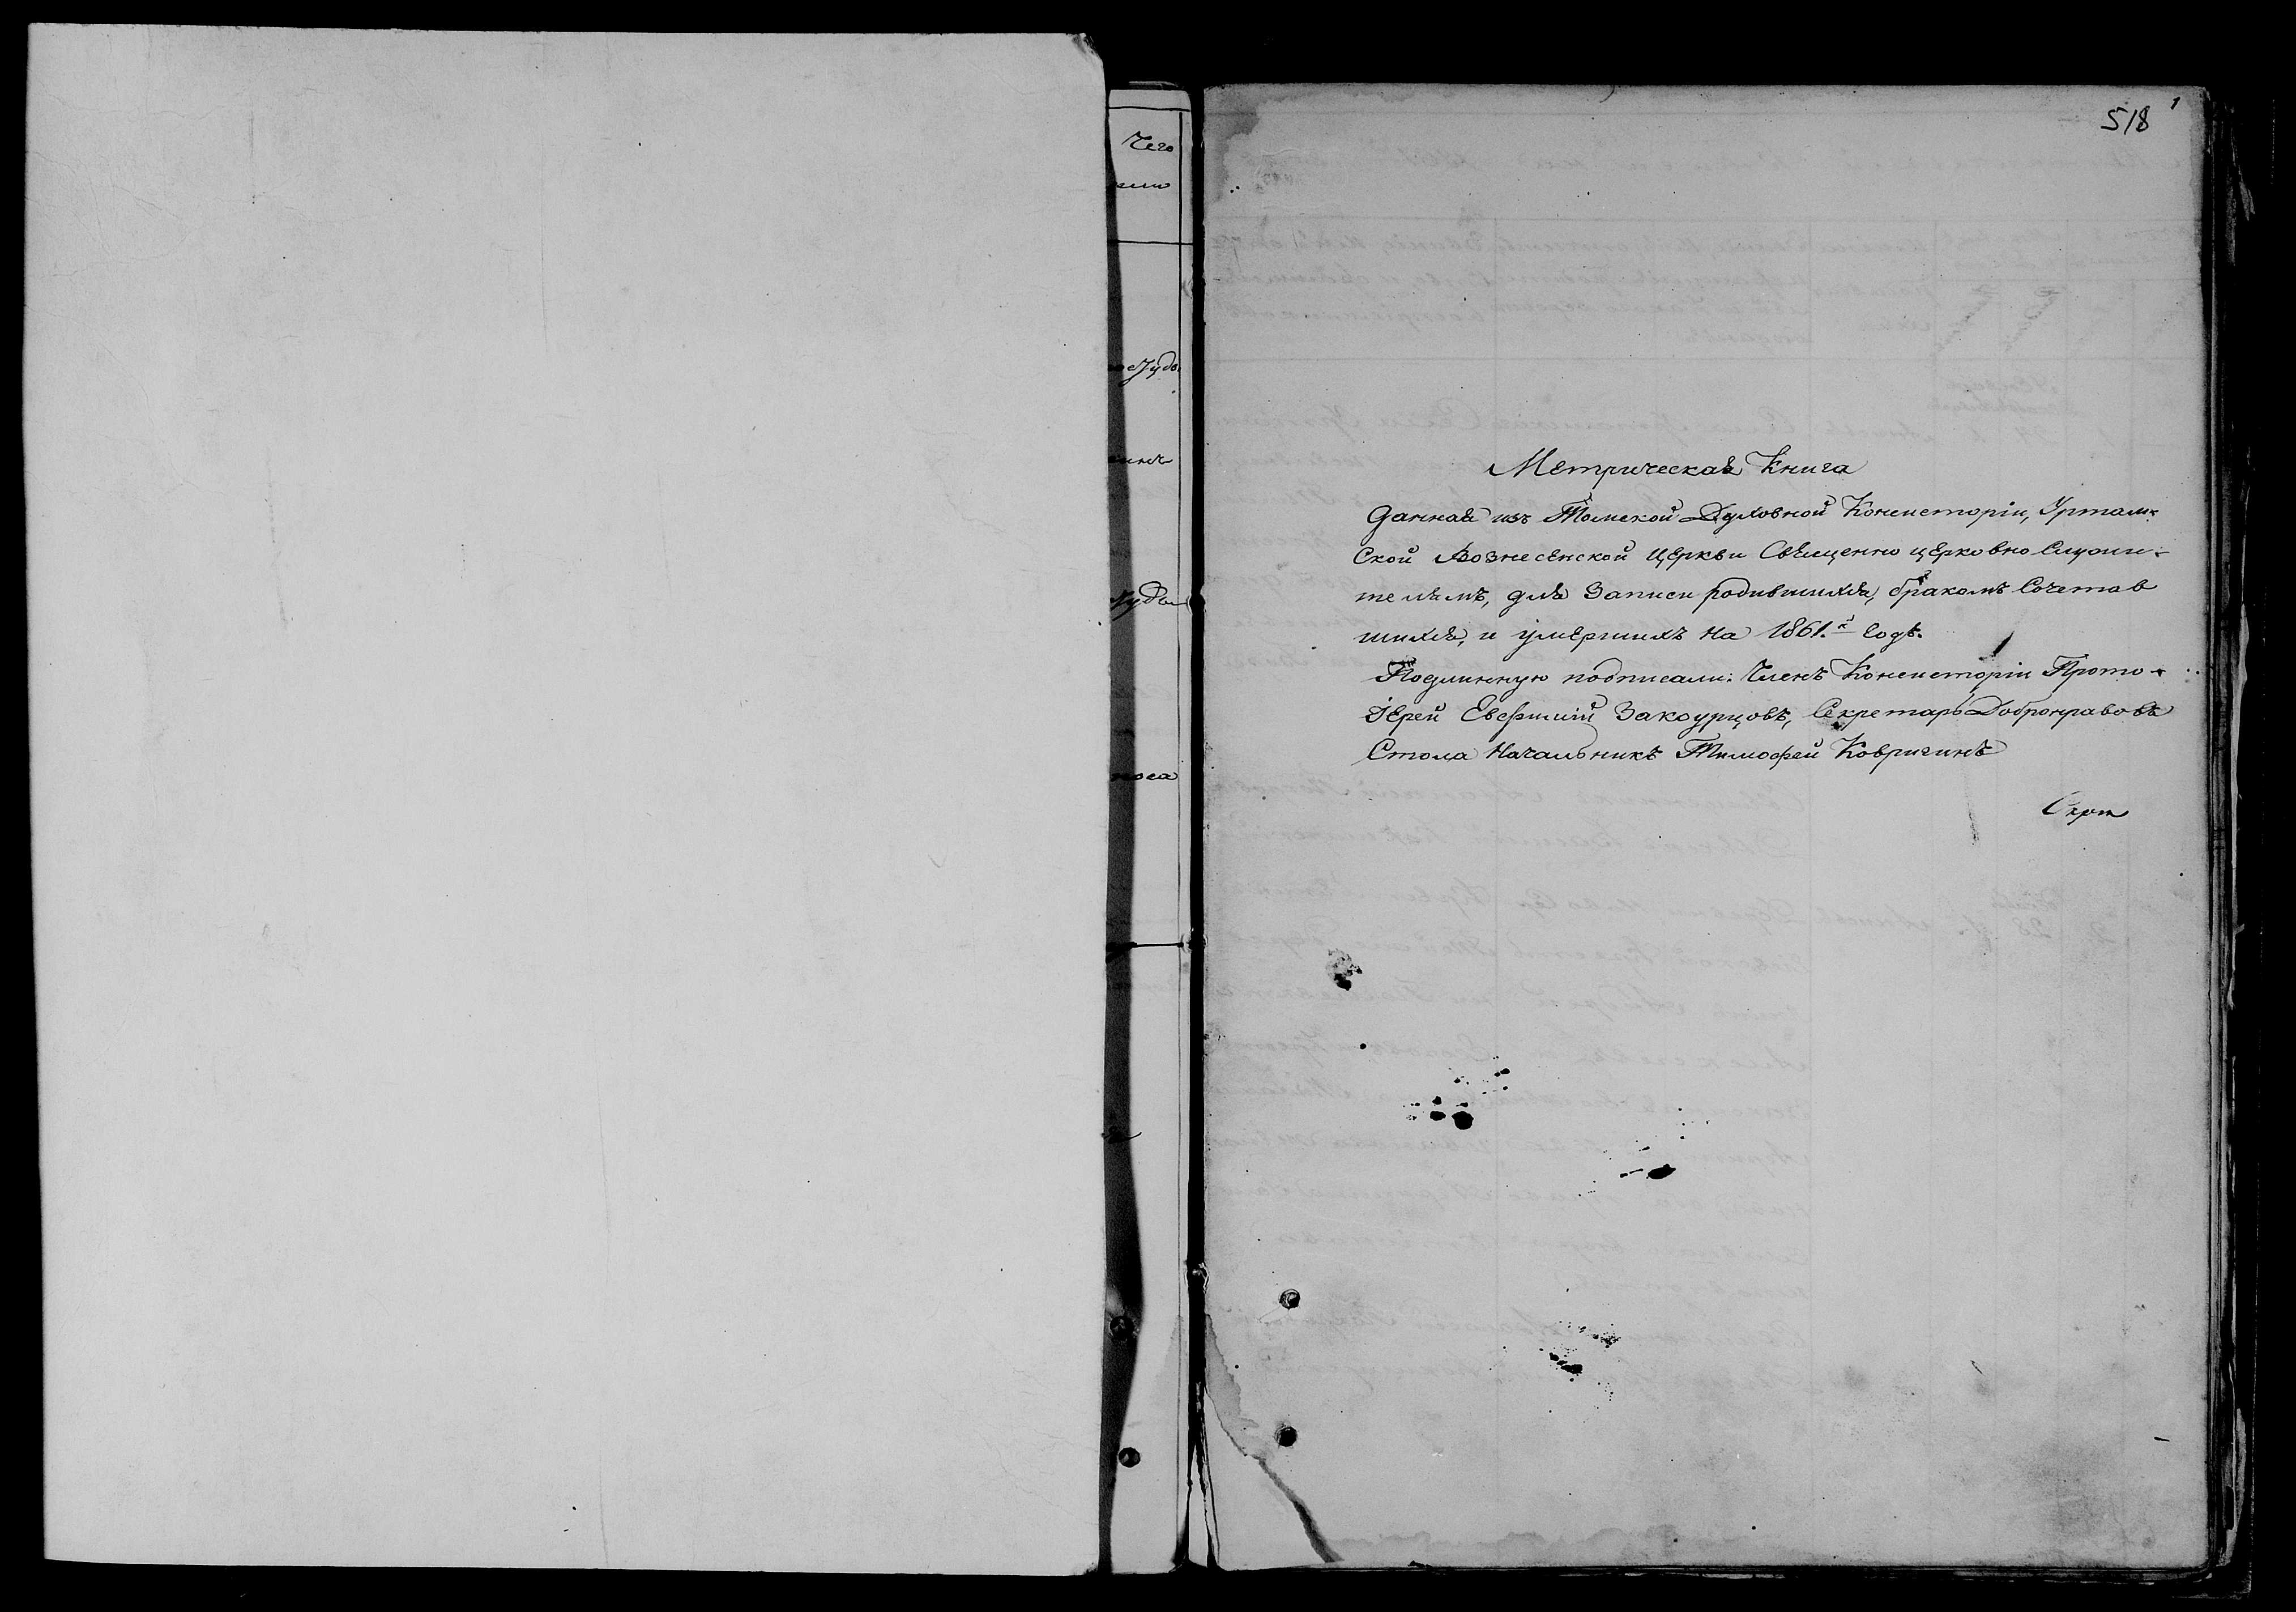 518
1
Чего
Метрическая Книга
данная изъ Томской Духовной Консисторіи, Уртам-
ской Вознесенской Церкви Священно церковно Служи-
телямъ, для Записи родившихся, бракомъ Сочетав
шихся, и умершихъ на 1861.й годъ.
Подлинную подписали: Членъ Консисторіи Прото-
Іерей Евфимій Закоурцовъ, Секретарь Добронравовъ
Стола Начальникъ Тимофей Ковригинъ